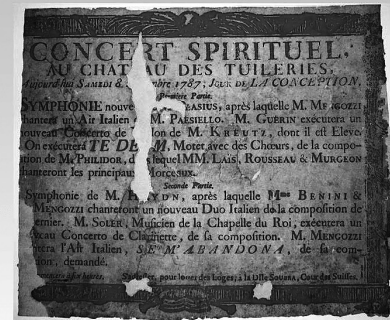 CONCERT SPIRITUEL,
AU CHATEAU DES TUILERIES,
Aujourd'hui SAMEDI 8 1787; JOUR DE LA CONCEPTION,
Première Partie.
SYMPHONIE nouv ASIUS, après laquelle M. MENGOZZI
chantera un Air Italien M. PAESIELLO. M. GUERIN exécutera un
nouveau Concerto de lon de M. KREUTZ, dont il est Eleve.
On exécutera TE DE M, Motet avec des Chœurs, de la compo-
sition de M. PHILIDOR, d lequel MM. LAïS, ROUSSEAU & MURGEON
chanteront les principaux Morceaux.
Seconde Partie.
Symphonie de M. H YDN, après laquelle Mme BENINI &
MENGOZZI chanteront un nouveau Duo Italien de la composition de
dernier. M. SOLER, Musicien de la Chapelle du Roi, exécutera un
veau Concerto de Clarinette, de sa composition. M. MENGOZZI
ntera l'Air Italien, SE M'ABANDONA, de sa com-
ion, demandé.
à six heures. S'adresser, pour louer des Loges, à la Dlle , Cour des Suisses.